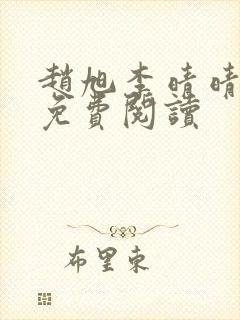 趙旭李晴晴
免費閱讀
布里東